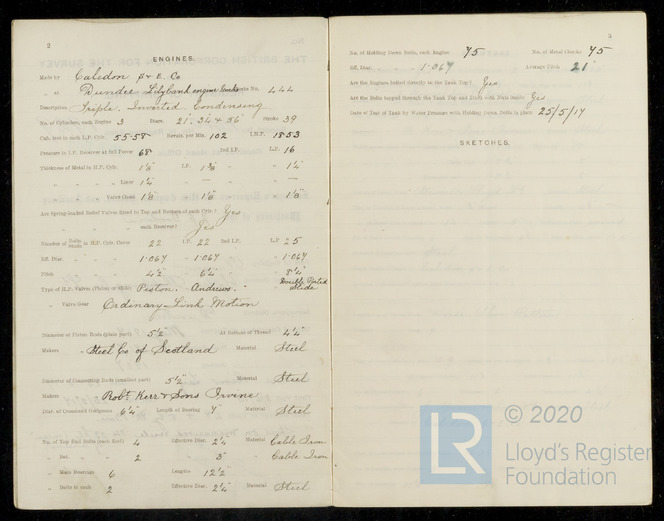 2
ENGINES.
Made by Caledon S & E. Co
" at Dundee Lilybank engine Works Works No. 444
Description Triple. Inverted. Condensing
No. of Cylinders, each Engine 3 Diars. 21". 34 & 56" Stroke 39
Cub. feet in each L.P. Cylr. 55.58 Revols. per Min. 102 I.H.P. 1853
Pressure in I.P. Receiver at full Power 68 2nd I.P. L.P. 16
Thickness of Metal in H.P. Cylr. 1⅛" I.P. 1⅜" - L.P. 1¼"
" " " Liner 1¼ - - -
" " " Valve Chest 1⅛" 1⅛" - 1⅛"
Are Spring-loaded Relief Valves fitted to Top and Bottom of each Cylr.? Yes
" " " each Receiver? Yes
Number of Bolts Studs in H.P. Cylr. Cover 22 I.P. 22 2nd I.P. L.P. 25
Eff. Diar. " " 1.067 1.067 - 1.067
Pitch " " 4½" 6¼" - 8¼"
Type of H.P. Valves (Piston or slide) Piston. Andrews. - Double Ported Slide
" Valve Gear Ordinary Link Motion
Diameter of Piston Rods (plain part) 5½" At Bottom of Thread 4¼"
Makers Steel Co of Scotland Material Steel
Diameter of Connecting Rods (smallest part) 5½" Material Steel
Makers Robt. Kerr & Sons Irvine
Diar. of Crosshead Gudgeons 6¼" Length of Bearing 7" Material Steel
No. of Top End Bolts (each Rod) 4 Effective Diar. 2¼ Material Cable Iron
" Bot. " " 2 " 3" " Cable Iron
" Main Bearings 6 Lengths 12½
" Bolts in each 2 Effective Diar. 2¼" Material Steel
3
No. of Holding Down Bolts, each Engine 75 No. of Metal Chocks 75
Eff. Diar. 1.067 Average Pitch 21"
Are the Engines bolted directly to the Tank Top? Yes
Are the Bolts tapped through the Tank Top and fitted with Nuts Inside Yes
Date of Test of Tank by Water Pressure with Holding Down Bolts in place 25/5/17
SKETCHES.
LR
© 2020
Lloyd's Register
Foundation